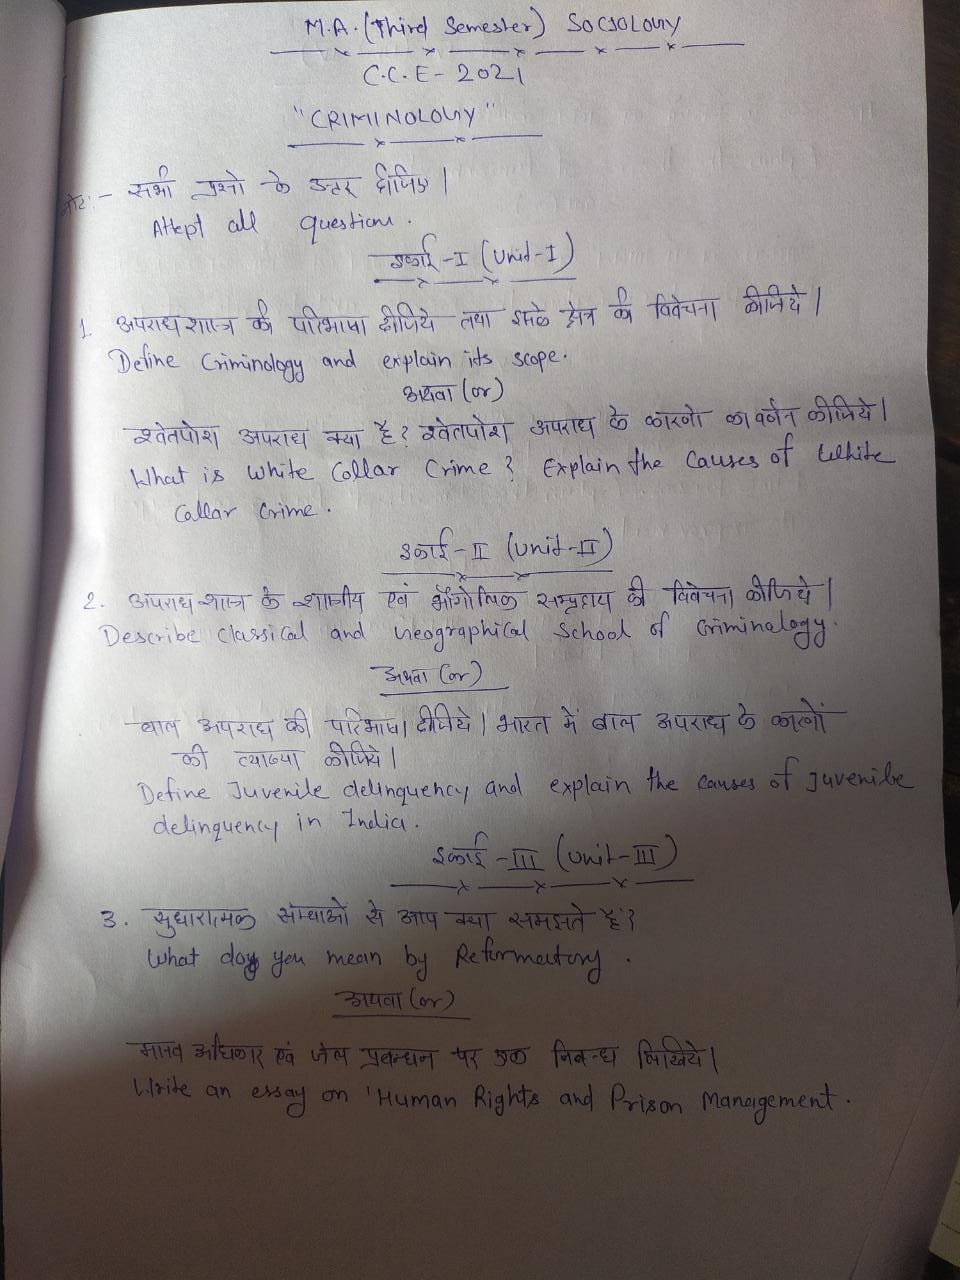 M.A. (Third Semester) SOCIOLOGY
C.C.E - 2021
"CRIMINOLOGY"
नोट:- सभी प्रश्नो के उत्तर दीजिए।
Attept all question.
इकाई-I (Unit-I)
1. अपराधशास्त्र की परिभाषा दीजिये तथा इसके क्षेत्र की विवेचना कीजिये।
Define Criminology and explain its scope.
अथवा (or)
श्वेतपोश अपराध क्या है? श्वेतपोश अपराध के कारणो का वर्णन कीजिये।
What is White Collar Crime? Explain the Causes of White
Collar Crime.
इकाई-II (Unit-II)
2. अपराधशास्त्र के शास्त्रीय एवं भौगोलिक सम्प्रदाय की विवेचना कीजिये।
Describe Classical and Geographical School of Criminology.
अथवा (or)
बाल अपराध की परिभाषा दीजिये। भारत में बाल अपराध के कारणों
की व्याख्या कीजिये।
Define Juvenile delinquency and explain the causes of Juvenile
delinquency in India.
इकाई-III (Unit-III)
3. सुधारात्मक संस्थाओं से आप क्या समझते हैं?
What do you mean by Reformatory.
अथवा (or)
मानव अधिकार एवं जेल प्रबन्धन पर एक निबन्ध लिखिये।
Write an essay on 'Human Rights and Prison Management.